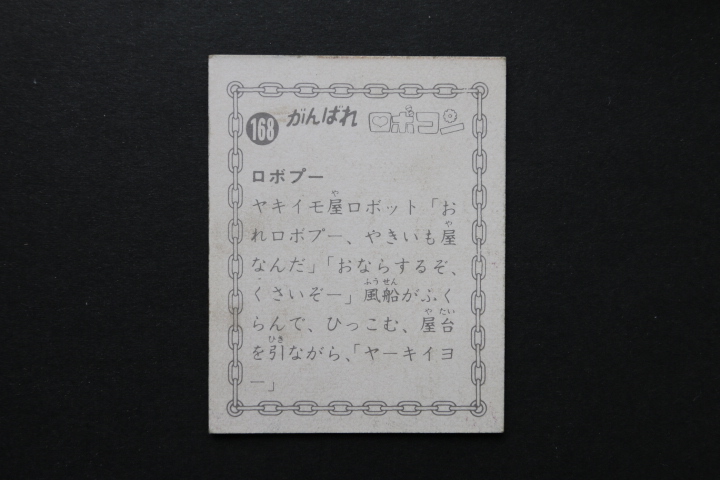 168 がんばれ ロボコン
ロボプー
ヤキイモ屋ロボット「お
れロボプー、やきいも屋
なんだ」「おならするぞ、
くさいぞー」風船がふく
らんで、ひっこむ、屋台
を引ながら、「ヤーキイヨ
ー」